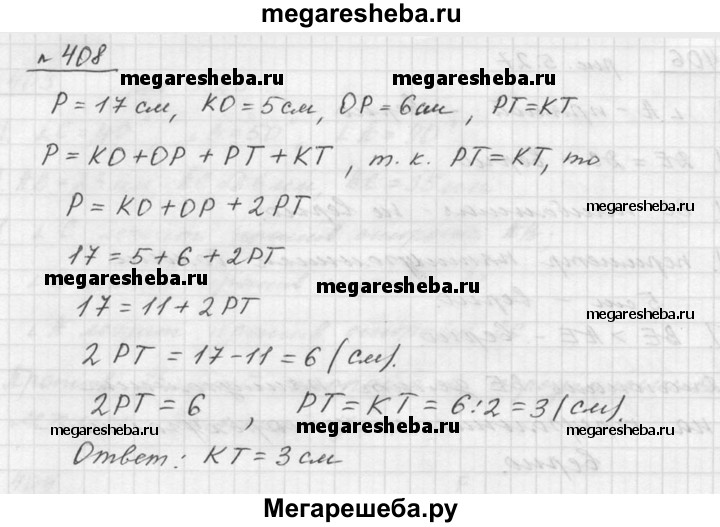 megaresheba.ru
№ 408
megaresheba.ru megaresheba.ru
P = 17 см, KO = 5 см, OP = 6 см, PT = KT
P = KO + OP + PT + KT, т. к. PT = KT, то
P = KO + OP + 2 PT
megaresheba.ru
17 = 5 + 6 + 2PT
megaresheba.ru megaresheba.ru
17 = 11 + 2 PT
megaresheba.ru
2 PT = 17 - 11 = 6 (см).
2PT = 6, PT = KT = 6 : 2 = 3 (см).
megaresheba.ru megaresheba.ru megaresheba.ru
Ответ: KT = 3 см
Мегарешеба.ру